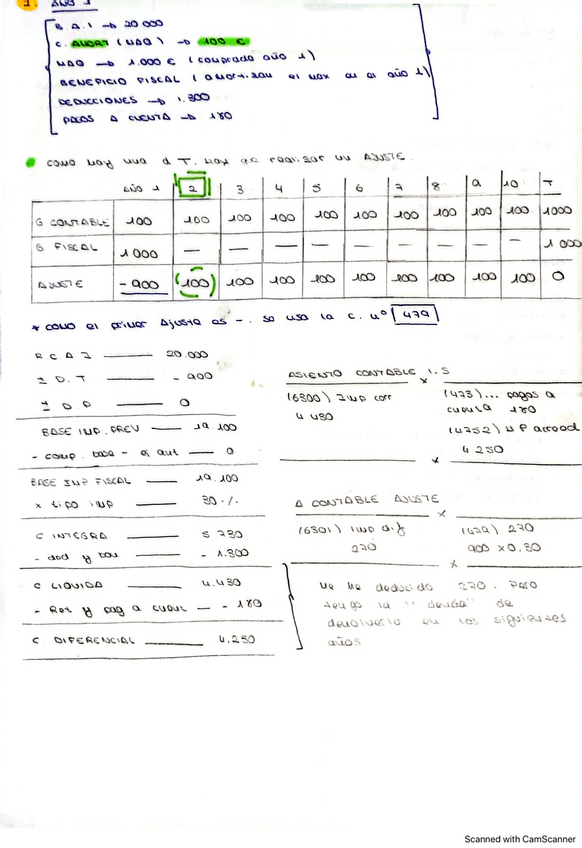 1. AÑO 1
B.A.I → 20 000
C. AMORT (MAQ) → 100 €
MAQ → 1.000 € (comprado año 1)
BENEFICIO FISCAL (amortizau el max en el año 1)
DEDUCCIONES → 1.300
PAGOS A CUENTA → 180
como hay una d T. hay qe realizar un AJUSTE.
año 1 2 3 4 5 6 7 8 9 10 T
G CONTABLE 100 100 100 100 100 100 100 100 100 100 1000
G FISCAL 1 000 — — — — — — — — — 1 000
AJUSTE - 900 (100) 100 100 100 100 100 100 100 100 0
* como el primer Ajuste es -. se usa la c. nº 479
R C A I —— 20.000
± D.T —— - 900
± D P —— 0
BASE IMP. PREV —— 19.100
- comp. base - ej ant —— 0
BASE IMP FISCAL —— 19.100
x tipo imp —— 30.%
C INTEGRA —— 5 730
- ded y bon —— - 1.300
C LIQUIDA —— 4.430
- Ret y pag a cuent — - 180
C. DIFERENCIAL —— 4.250
ASIENTO CONTABLE I.S
x
(6300) Imp corr
4 430
(473)... pagos a
cuenta 180
(4752) HP acreed
4 250
x
A CONTABLE AJUSTE
x
(6301) Imp dif
270
(479) 270
900 x 0,30
x
Me he deducido 270. Pero
tengo la "deuda" de
devolverlo en los siguientes
años
Scanned with CamScanner